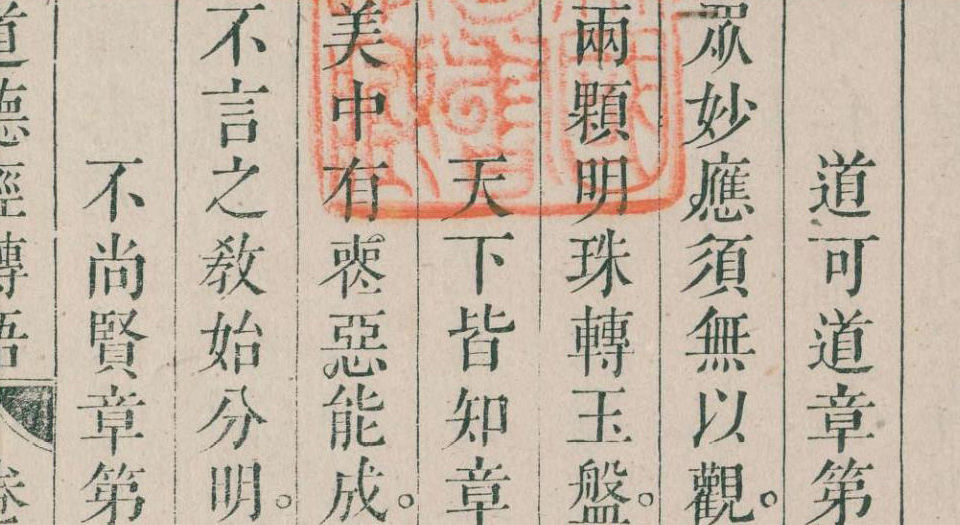 道可道章第
眾妙應須無以觀。
兩顆明珠轉玉盤。
天下皆知章
美中有惡能成。
不言之敎始分明。
不尚賢章第
道德經轉語